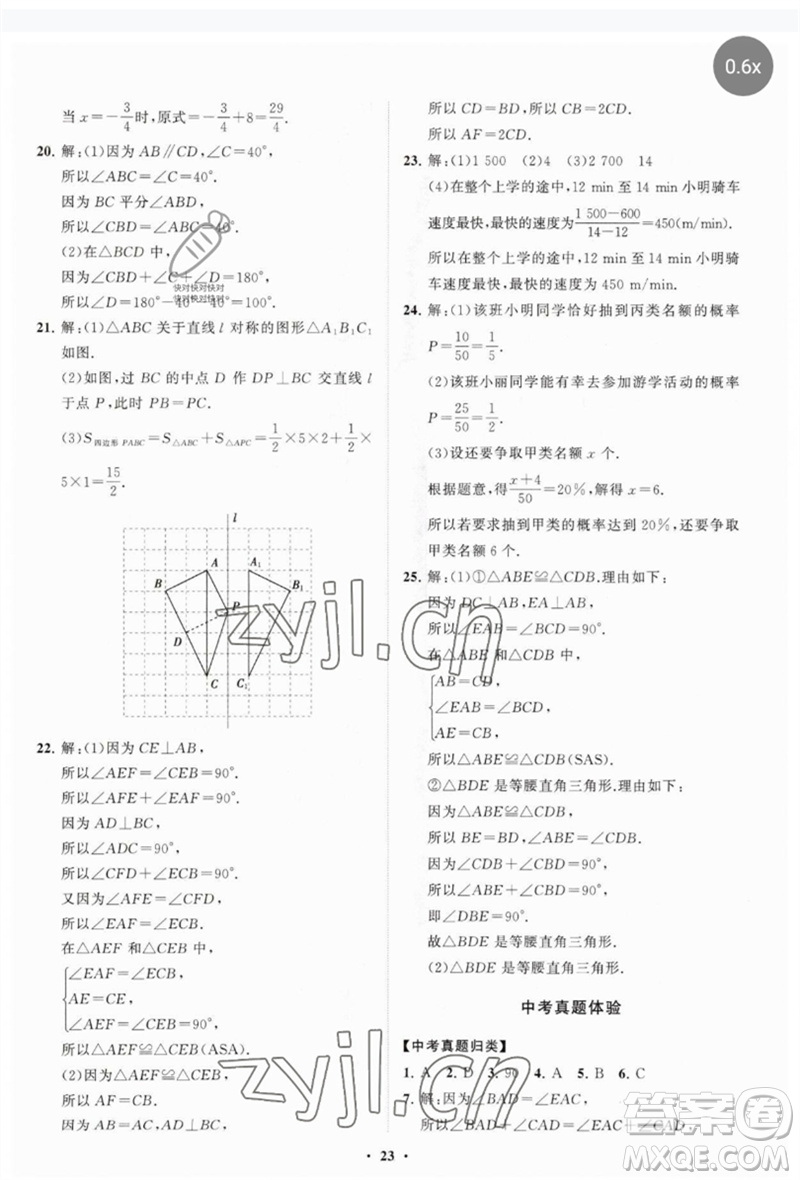 0.6x
当 x=-3/4时,原式=-3/4+8=29/4.
20. 解:(1)因为 AB∥CD,∠C=40°,
所以∠ABC=∠C=40°.
因为 BC 平分∠ABD,
所以∠CBD=∠ABC=40°.
(2)在△BCD 中,
因为∠CBD+∠C+∠D=180°,
所以∠D=180°-40°-40°=100°.
快对快对快对
快对快对快对
21. 解:(1)△ABC 关于直线 l 对称的图形△A₁B₁C₁
如图.
(2)如图,过 BC 的中点 D 作 DP⊥BC 交直线 l
于点 P,此时 PB=PC.
(3)S四边形 PABC=S△ABC+S△APC=1/2×5×2+1/2×
5×1=15/2.
l
A
A₁
B
B₁
P
D
C
C₁
22. 解:(1)因为 CE⊥AB,
所以∠AEF=∠CEB=90°.
所以∠AFE+∠EAF=90°.
因为 AD⊥BC,
所以∠ADC=90°,
所以∠CFD+∠ECB=90°.
又因为∠AFE=∠CFD,
所以∠EAF=∠ECB.
在△AEF 和△CEB 中,
∠EAF=∠ECB,
AE=CE,
∠AEF=∠CEB=90°,
所以△AEF≌△CEB(ASA).
(2)因为△AEF≌△CEB,
所以 AF=CB.
因为 AB=AC,AD⊥BC,
所以 CD=BD,所以 CB=2CD.
所以 AF=2CD.
23. 解:(1)1 500 (2)4 (3)2 700 14
(4)在整个上学的途中,12 min 至 14 min 小明骑车
速度最快,最快的速度为(1 500-600)/(14-12)=450(m/min).
所以在整个上学的途中,12 min 至 14 min 小明骑
车速度最快,最快的速度为 450 m/min.
24. 解:(1)该班小明同学恰好抽到丙类名额的概率
P=10/50=1/5.
(2)该班小丽同学能有幸去参加游学活动的概率
P=25/50=1/2.
(3)设还要争取甲类名额 x 个.
根据题意,得(x+4)/50=20%,解得 x=6.
所以若要求抽到甲类的概率达到 20%,还要争取
甲类名额 6 个.
25. 解:(1)①△ABE≌△CDB.理由如下:
因为 DC⊥AB,EA⊥AB,
所以∠EAB=∠BCD=90°.
在△ABE 和△CDB 中,
AB=CD,
∠EAB=∠BCD,
AE=CB,
所以△ABE≌△CDB(SAS).
②△BDE 是等腰直角三角形.理由如下:
因为△ABE≌△CDB,
所以 BE=BD,∠ABE=∠CDB,
因为∠CDB+∠CBD=90°,
所以∠ABE+∠CBD=90°,
即∠DBE=90°.
故△BDE 是等腰直角三角形.
(2)△BDE 是等腰直角三角形.
中考真题体验
【中考真题归类】
1. A 2. D 3. 90 4. A 5. B 6. C
7. 解:因为∠BAD=∠EAC,
所以∠BAD+∠CAD=∠EAC+∠CAD,
• 23 •
zyjl.cn
zyjl.cn
答案卷
MXQE.COM